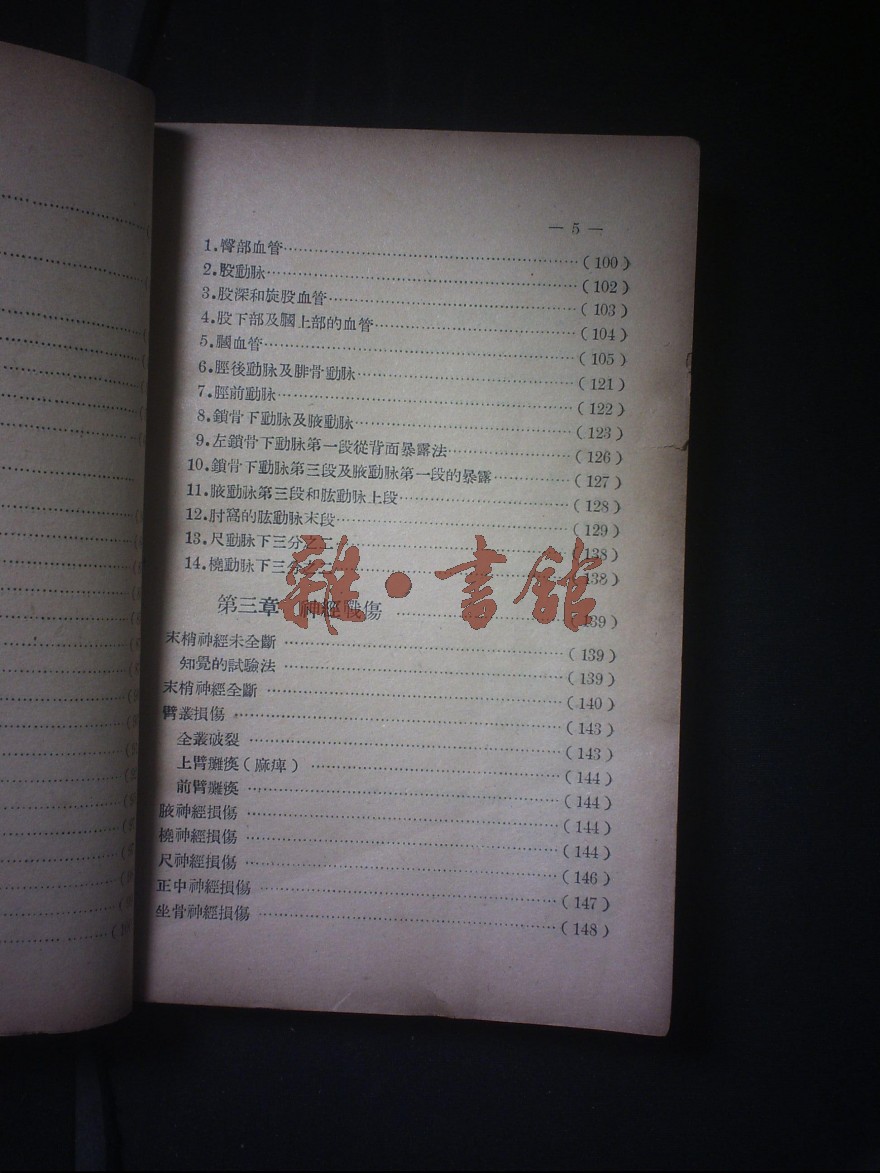 — 5 —
1.臀部血管……………………(100)
2.股動脉……………………(102)
3.股深和旋股血管……………………(103)
4.股下部及膕上部的血管……………………(104)
5.膕血管……………………(105)
6.脛後動脉及腓骨動脉……………………(121)
7.脛前動脉……………………(122)
8.鎖骨下動脉及腋動脉……………………(123)
9.左鎖骨下動脉第一段從背面暴露法……………………(126)
10.鎖骨下動脉第三段及腋動脉第一段的暴露……………………(127)
11.腋動脉第三段和肱動脉上段……………………(128)
12.肘窩的肱動脉末段……………………(129)
13.尺動脉下三分之二……………………(138)
14.橈動脉下三分……………………(138)
第三章 神經戰傷……………………(139)
末梢神經未全斷……………………(139)
知覺的試驗法……………………(139)
末梢神經全斷……………………(140)
臂叢損傷……………………(143)
全叢破裂……………………(143)
上臂癱瘓(麻痺)……………………(144)
前臂癱瘓……………………(144)
腋神經損傷……………………(144)
橈神經損傷……………………(144)
尺神經損傷……………………(146)
正中神經損傷……………………(147)
坐骨神經損傷……………………(148)
雜·書館